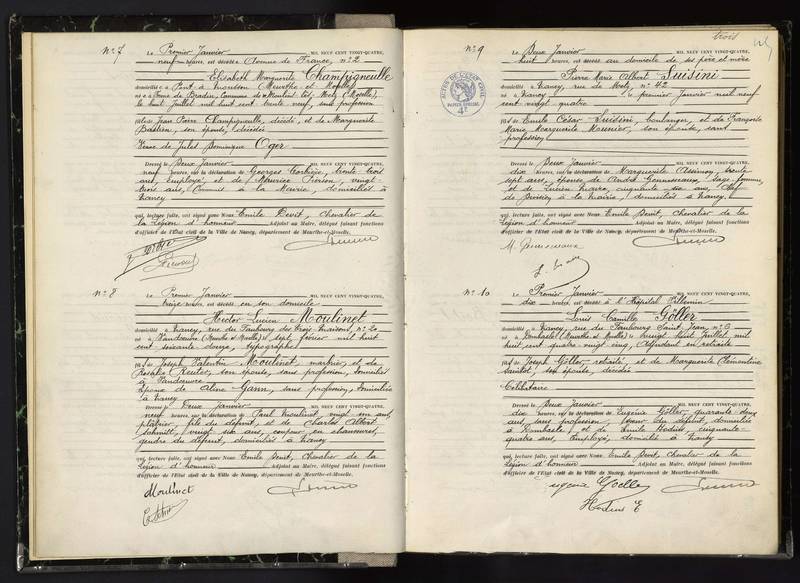 N° 7
Le Premier Janvier MIL NEUF CENT VINGT-QUATRE,
neuf heures, est décédée Avenue de France, n° 2
Elisabeth Marguerite Champigneulle
domiciliée à Pont à Mousson (Meurthe et Moselle)
née à Ferme de Bradin, Commune de Moulins lès Metz (Moselle)
le huit Juillet mil huit cent trente neuf, sans profession
fille de Jean Pierre Champigneulle, décédé, et de Marguerite
Bastien, son épouse, décédée
Veuve de Jules Dominique Oger
Dressé le Deux Janvier MIL NEUF CENT VINGT-QUATRE,
neuf heures, sur la déclaration de Georges Corbière, trente trois
ans, employé, et de Maurice Pierson, vingt
trois ans, Commis à la Mairie, domiciliés à
Nancy
qui, lecture faite, ont signé avec Nous Emile Devit, Chevalier de
la Légion d'honneur Adjoint au Maire, délégué faisant fonctions
d'officier de l'État civil de la Ville de Nancy, département de Meurthe-et-Moselle.
N° 8
Le Premier Janvier MIL NEUF CENT VINGT-QUATRE,
treize heures, est décédé en son domicile
Hector Lucien Moulinet
domicilié à Nancy, rue du Faubourg des Trois Maisons, n° 20
né à Vandoeuvre (Meurthe et Moselle) le sept février mil huit
cent soixante douze, typographe
fils de Joseph Valentin Moulinet, marbrier, et de
Reuter, son épouse, sans profession, domiciliés
à Vandoeuvre
Epoux de Aline Gann, sans profession, domiciliée
à Nancy
Dressé le Deux Janvier MIL NEUF CENT VINGT-QUATRE,
neuf heures, sur la déclaration de Paul Moulinet, vingt un ans,
plâtrier, fils du défunt et de Charles Albert
vingt huit ans, coupeur en chaussures,
gendre du défunt, domiciliés à Nancy
qui, lecture faite, ont signé avec Nous Emile Devit, Chevalier de la
Légion d'honneur Adjoint au Maire, délégué faisant fonctions
d'officier de l'État civil de la Ville de Nancy, département de Meurthe-et-Moselle.
Moulinet
trois
N° 9
Le Deux Janvier MIL NEUF CENT VINGT-QUATRE,
huit heures, est décédé au domicile de ses père et mère
Pierre Marie Albert Suisini
domicilié à Nancy, rue de Metz, n° 42
né à Nancy le premier Janvier mil neuf
cent vingt quatre
fils de Emile César Suisini, boulanger, et de Françoise
Marie Marguerite Munier, son épouse, sans
profession
ACTES DE L'ÉTAT CIVIL
PAPIER SPÉCIAL
Dressé le Deux Janvier MIL NEUF CENT VINGT-QUATRE,
dix heures, sur la déclaration de Marguerite Assinoy, trente
sept ans, épouse de André Gounouvaux, sage-femme,
et de Lucien cinquante six ans, Chef
de Bureau à la Mairie, domiciliés à Nancy
qui, lecture faite, ont signé avec Nous Emile Devit, Chevalier de la
Légion d'honneur Adjoint au Maire, délégué faisant fonctions
d'officier de l'État civil de la Ville de Nancy, département de Meurthe-et-Moselle.
N° 10
Le Premier Janvier MIL NEUF CENT VINGT-QUATRE,
dix heures, est décédé à l'Hôpital Villemin
Louis Camille Göller
domicilié à Nancy, rue du Faubourg Saint Jean, n° 6
né à Dombasle (Meurthe et Moselle) le vingt huit Juillet mil
huit cent quatre vingt cinq, en retraite
fils de Joseph Göller, retraité, et de Marguerite Clémentine
son épouse, décédée
Célibataire
Dressé le Deux Janvier MIL NEUF CENT VINGT-QUATRE,
dix heures, sur la déclaration de Eugénie Göller, quarante deux
ans, sans profession, soeur du défunt, domiciliée
à Dombasle, et de Emile cinquante
quatre ans, employé, domicilié à Nancy
qui, lecture faite, ont signé avec Nous Emile Devit, Chevalier de la
Légion d'honneur Adjoint au Maire, délégué faisant fonctions
d'officier de l'État civil de la Ville de Nancy, département de Meurthe-et-Moselle.
Eugénie Goeller